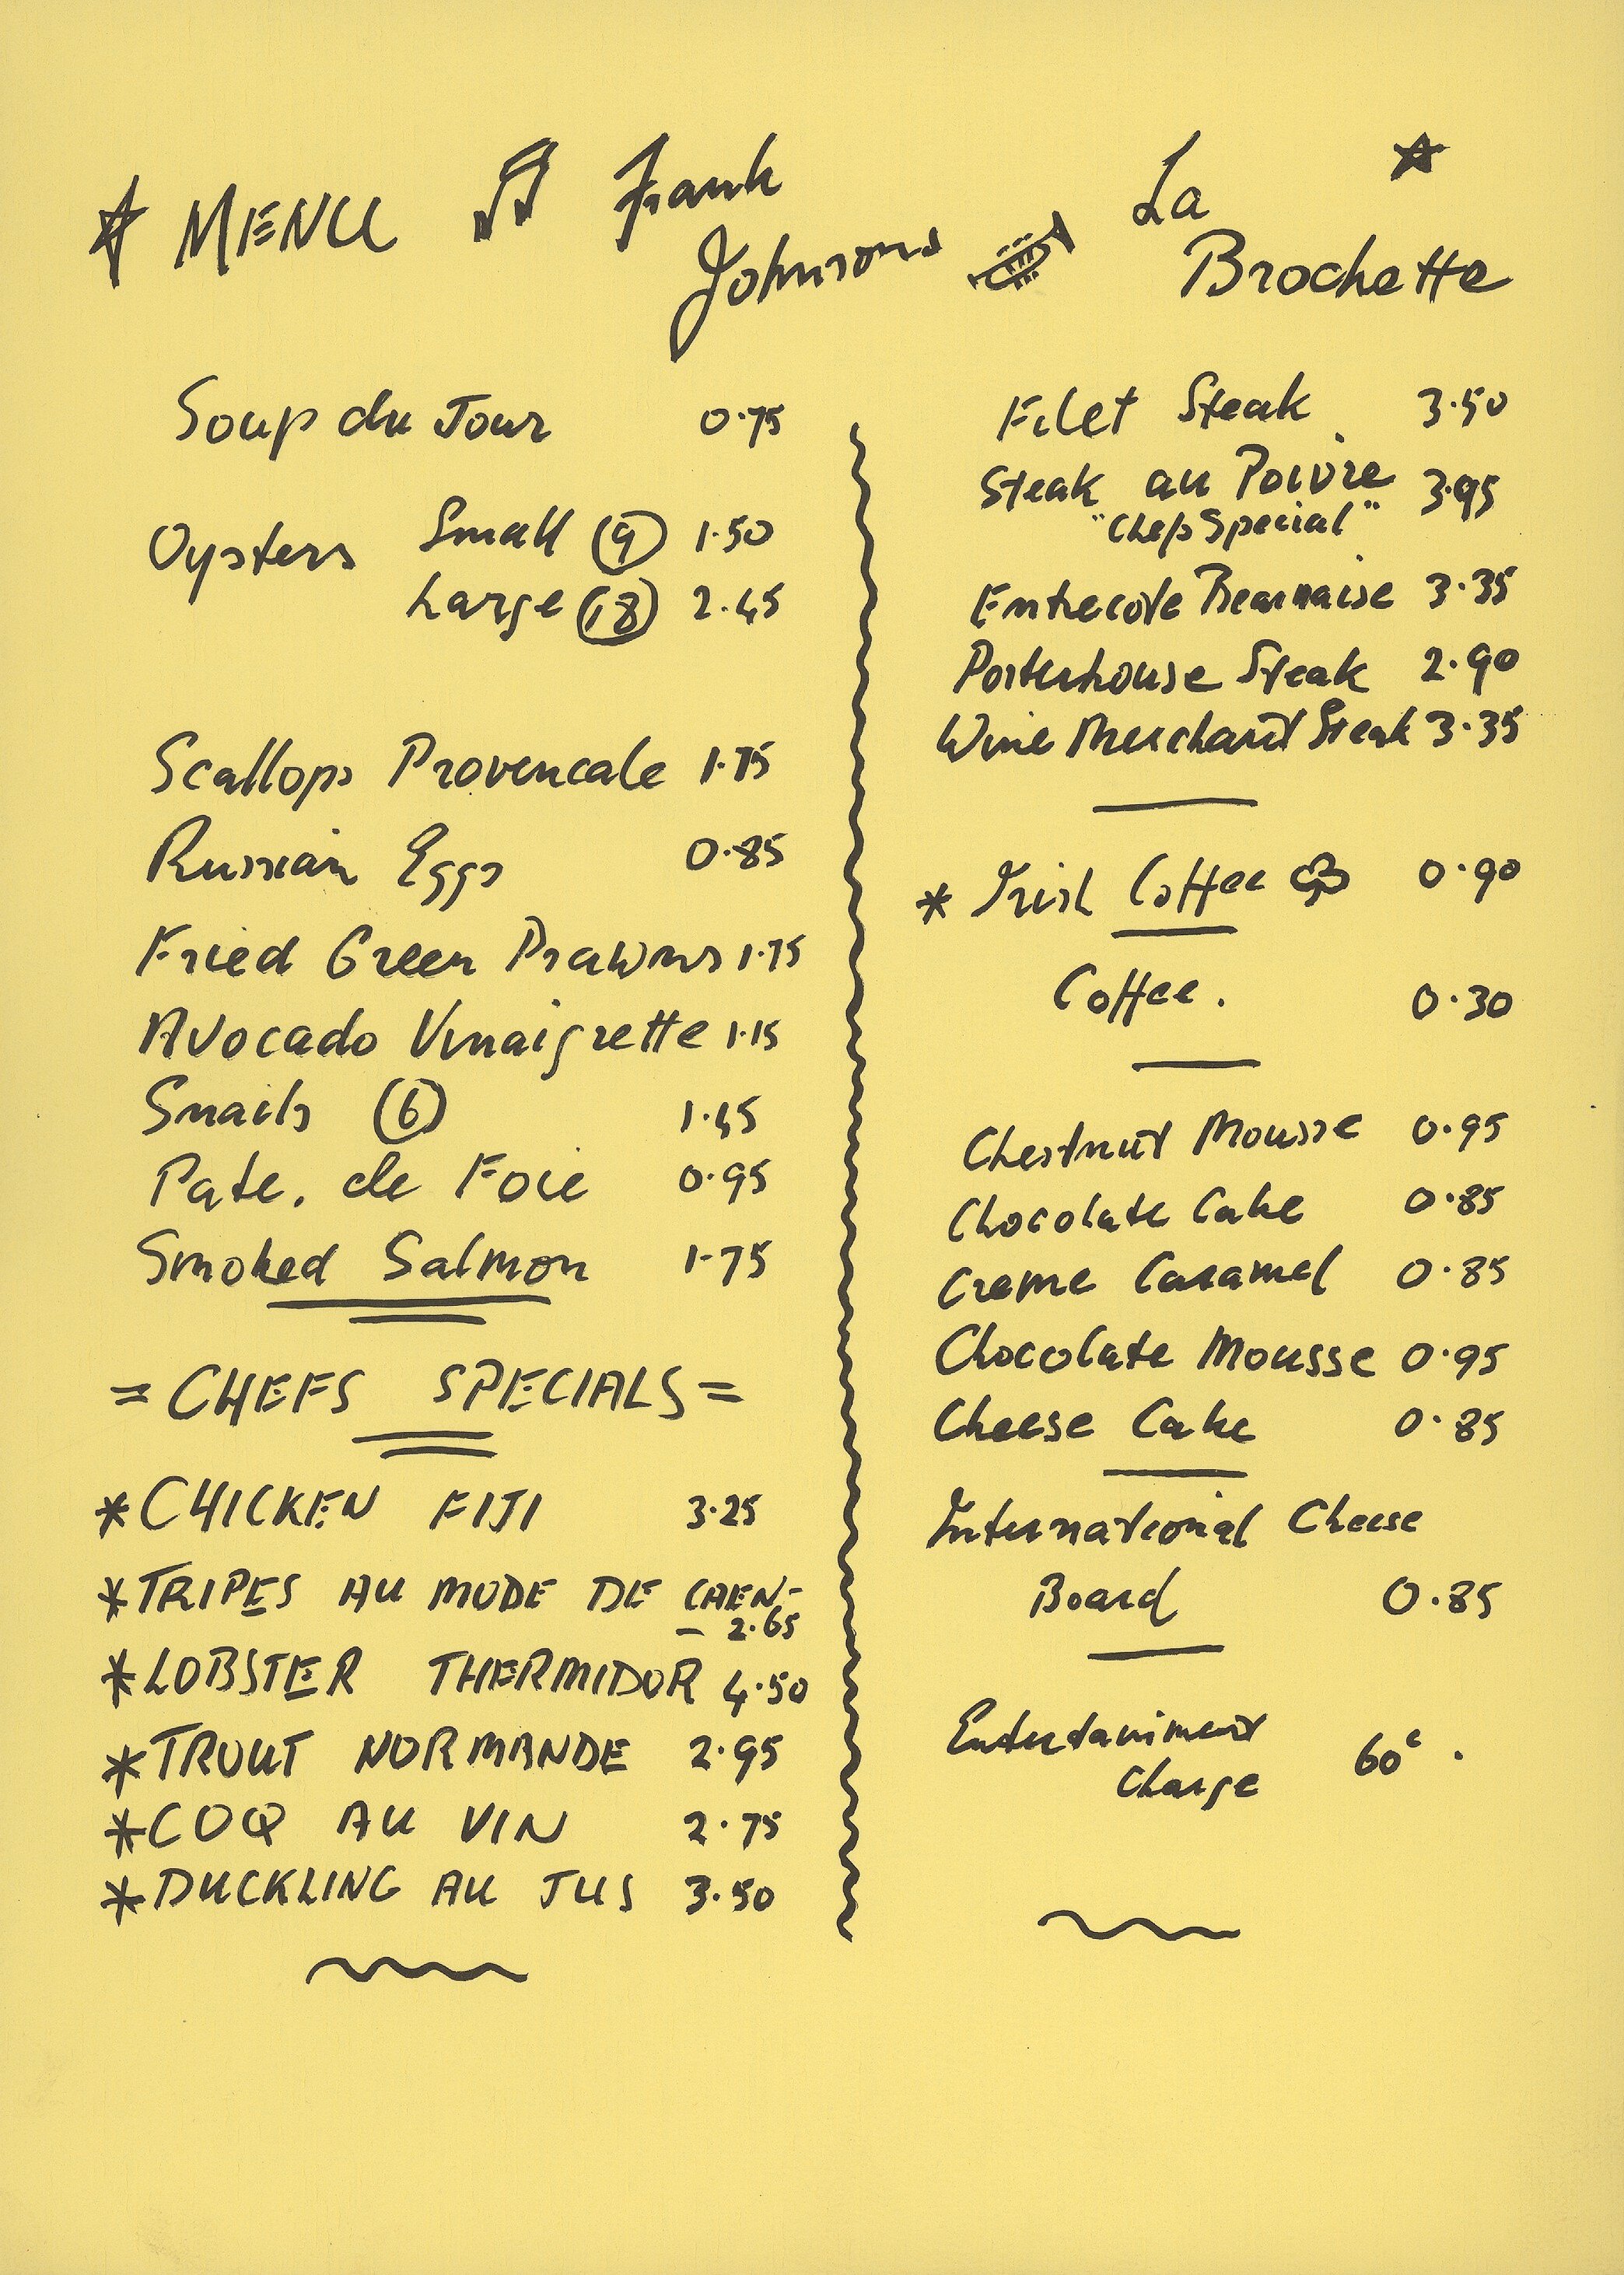 MENU Frank Johnsons La Brochette
Soup du Jour 0.75
Oysters Small (9) 1.50
Large (18) 2.45
Scallops Provencale 1.75
Russian Eggs 0.85
Fried Green Prawns 1.75
Avocado Vinaigrette 1.15
Snails (6) 1.45
Pate. de Foie 0.95
Smoked Salmon 1-75
= CHEFS SPECIALS =
* CHICKEN FIJI 3.25
* TRIPES AU MODE DE CAEN-
- 2.65
* LOBSTER THERMIDOR 4.50
* TROUT NORMANDE 2.95
* COQ AU VIN 2.75
* DUCKLING AU JUS 3.50
Filet Steak 3.50
Steak au Poivre 3.95
"Chefs Special"
Entrecote Bearnaise 3.35
Porterhouse Steak 2.90
Wine Merchant Steak 3.35
* Irish Coffee 0.90
Coffee. 0.30
Chestnut Mousse 0.95
Chocolate Cake 0.85
Creme Caramel 0.85
Chocolate Mousse 0.95
Cheese Cake 0.85
International Cheese
Board 0.85
Entertainment
Charge 60c.